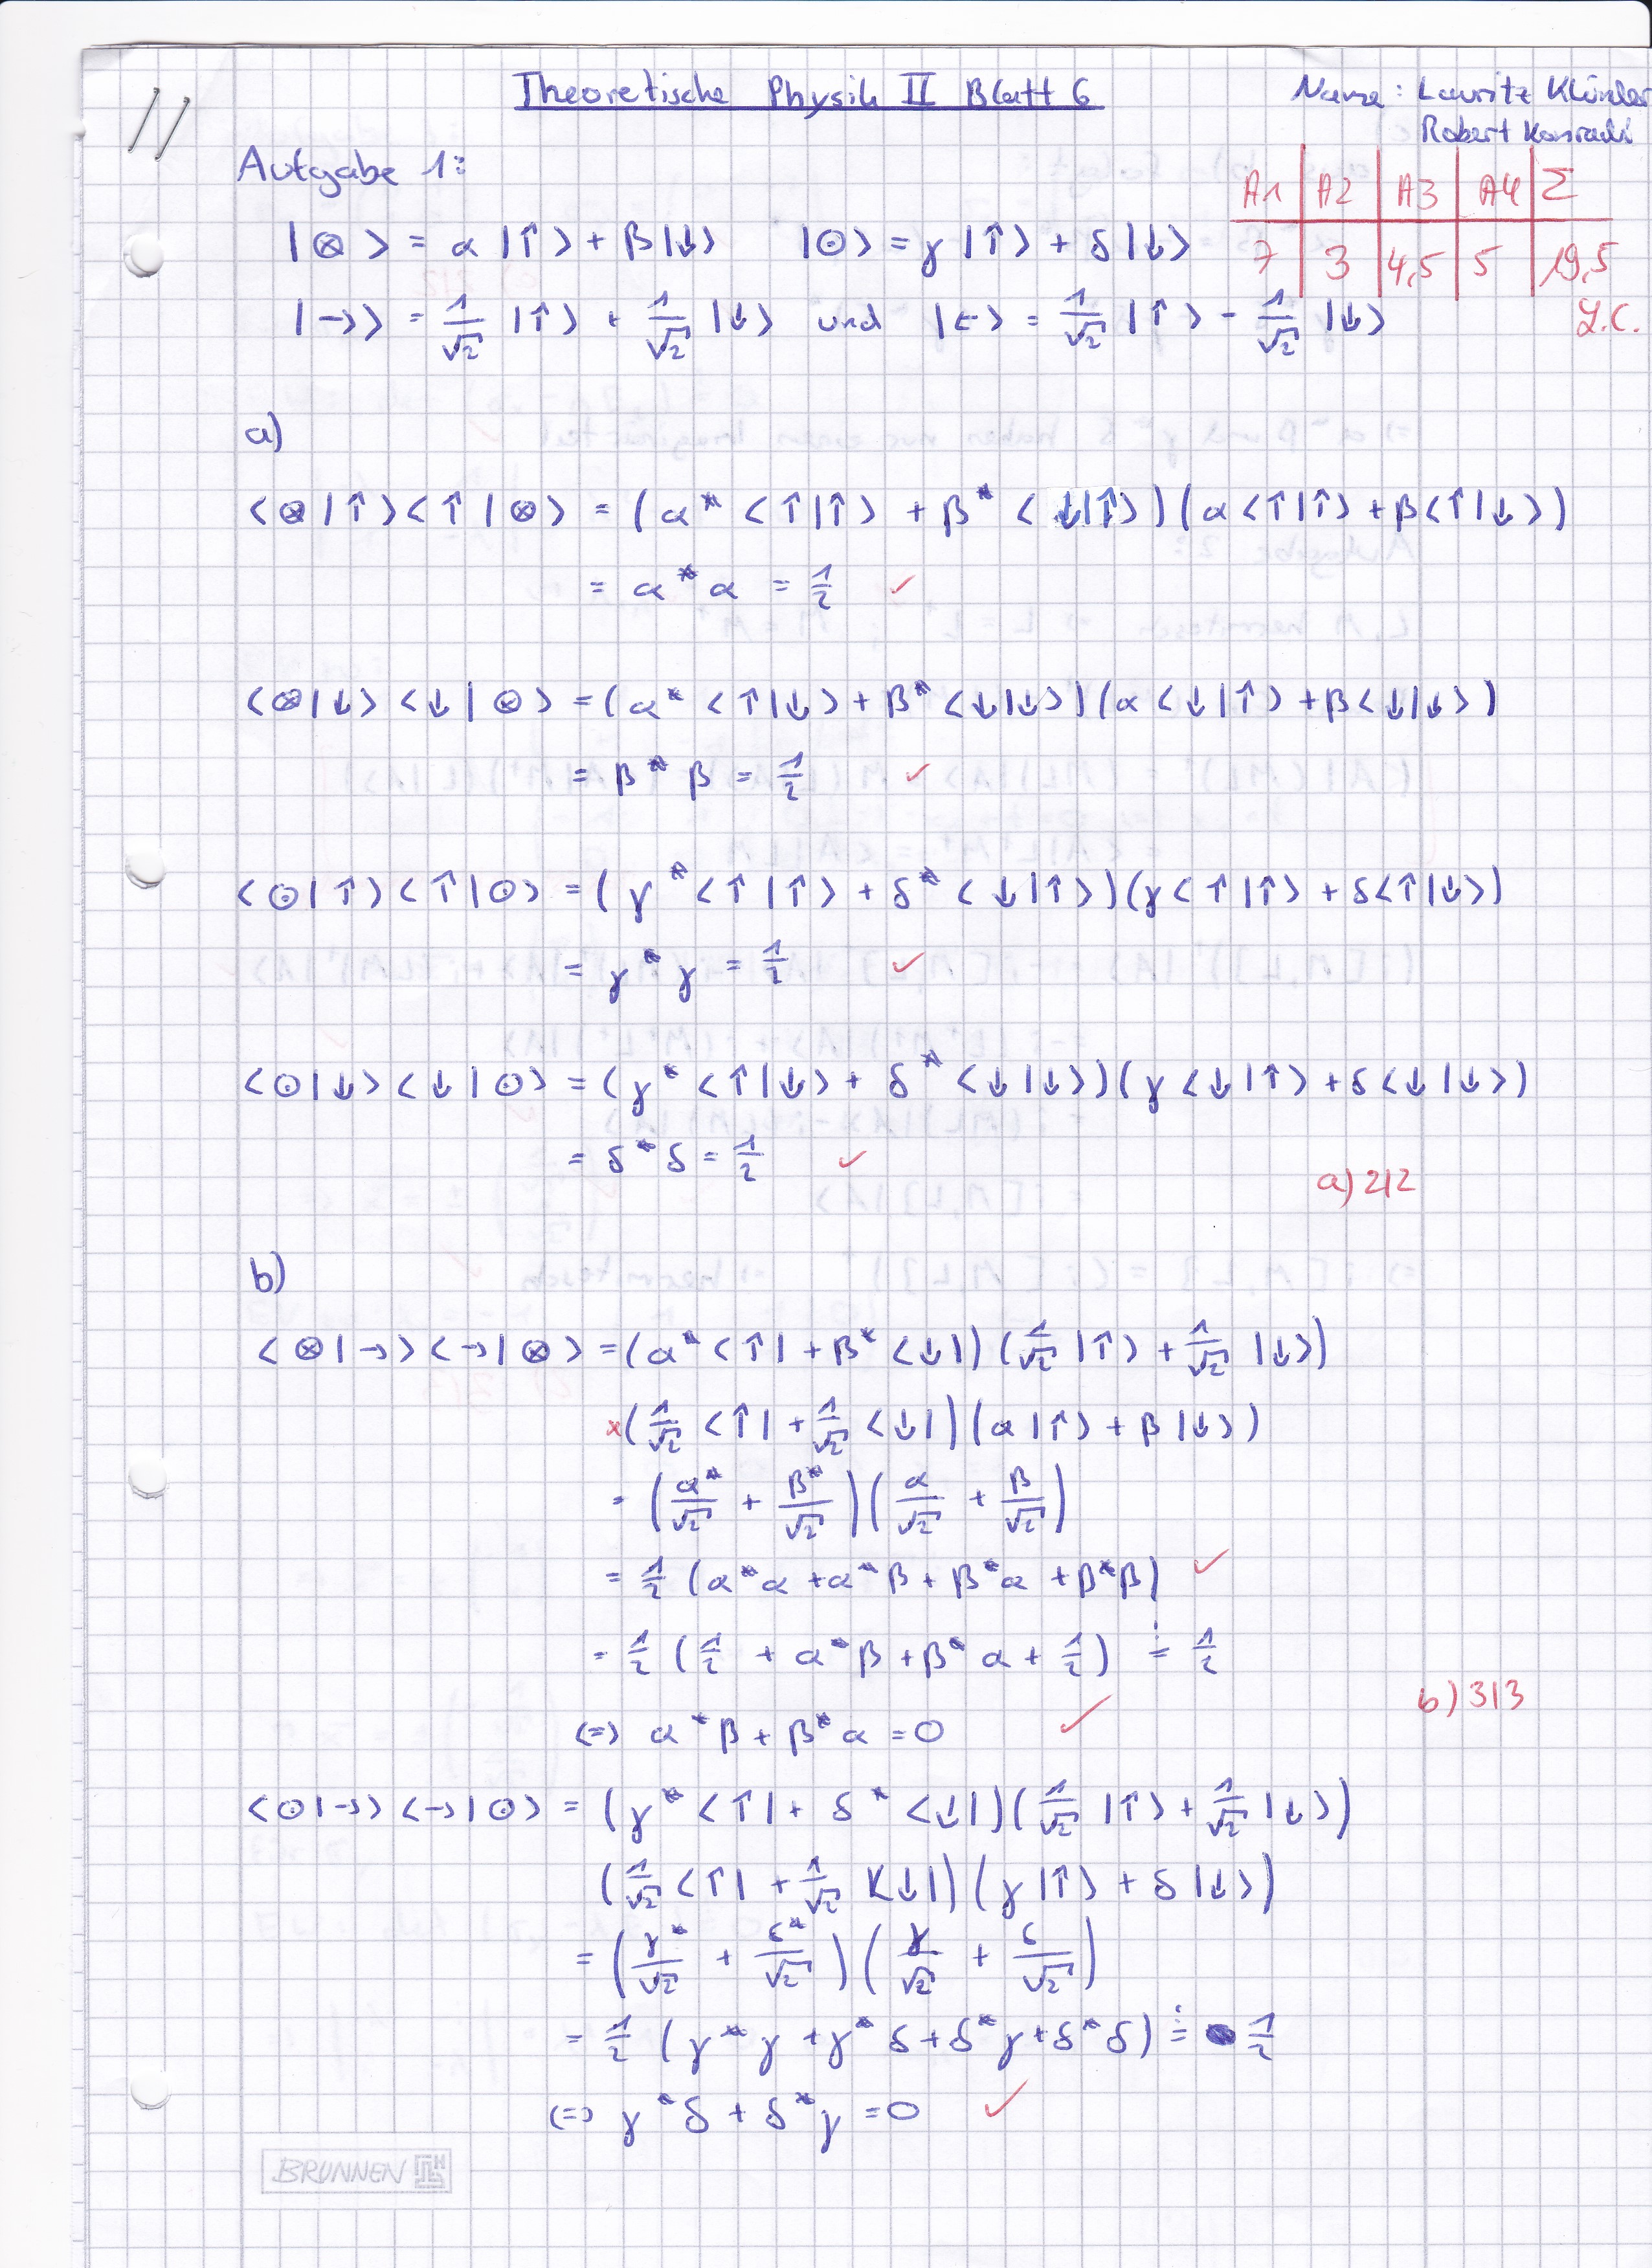 Theoretische Physik II Blatt 6
Name: Lauritz
Robert
Aufgabe 1:
A1 | A2 | A3 | A4 | Σ
7 | 3 | 4,5 | 5 | 19,5
|⊗⟩ = α |↑⟩ + β |↓⟩ |⊙⟩ = γ |↑⟩ + δ |↓⟩
|→⟩ = 1/√2 |↑⟩ + 1/√2 |↓⟩ und |←⟩ = 1/√2 |↑⟩ - 1/√2 |↓⟩
a)
⟨⊗|↑⟩⟨↑|⊗⟩ = (α* ⟨↑|↑⟩ + β* ⟨↓|↑⟩)(α⟨↑|↑⟩ + β⟨↑|↓⟩)
= α* α = 1/2 ✓
⟨⊗|↓⟩⟨↓|⊗⟩ = (α* ⟨↑|↓⟩ + β* ⟨↓|↓⟩)(α⟨↓|↑⟩ + β⟨↓|↓⟩)
= β* β = 1/2 ✓
⟨⊙|↑⟩⟨↑|⊙⟩ = (γ* ⟨↑|↑⟩ + δ* ⟨↓|↑⟩)(γ⟨↑|↑⟩ + δ⟨↑|↓⟩)
= γ* γ = 1/2 ✓
⟨⊙|↓⟩⟨↓|⊙⟩ = (γ* ⟨↑|↓⟩ + δ* ⟨↓|↓⟩)(γ⟨↓|↑⟩ + δ⟨↓|↓⟩)
= δ* δ = 1/2 ✓
a) 2|2
b)
⟨⊗|→⟩⟨→|⊗⟩ = (α* ⟨↑| + β* ⟨↓|)(1/√2 |↑⟩ + 1/√2 |↓⟩)
x(1/√2 ⟨↑| + 1/√2 ⟨↓|)(α |↑⟩ + β |↓⟩)
= (α*/√2 + β*/√2)(α/√2 + β/√2)
= 1/2 (α*α + α*β + β*α + β*β) ✓
= 1/2 (1/2 + α*β + β*α + 1/2) != 1/2
b) 3|3
(=) α*β + β*α = 0 ✓
⟨⊙|→⟩⟨→|⊙⟩ = (γ* ⟨↑| + δ* ⟨↓|)(1/√2 |↑⟩ + 1/√2 |↓⟩)
(1/√2 ⟨↑| + 1/√2 ⟨↓|)(γ |↑⟩ + δ |↓⟩)
= (γ*/√2 + δ*/√2)(γ/√2 + δ/√2)
= 1/2 (γ*γ + γ*δ + δ*γ + δ*δ) != 1/2
(=) γ*δ + δ*γ = 0 ✓
BRUNNEN